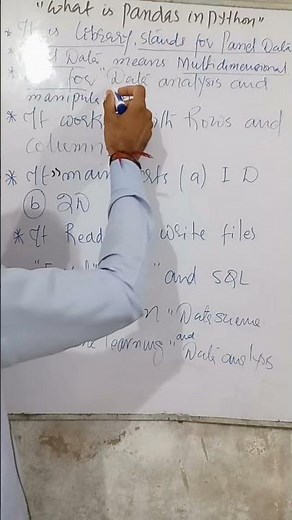 "What is pandas in python"
* It is library, stands for Panel Data
Data, means Multidimensional
for "Data analysis and
manipula
* It work Rows and
column
* It main (a) 1 D
(b) 2D
* It Read write files
" and SQL
n "Data science
learning" and Data analysis